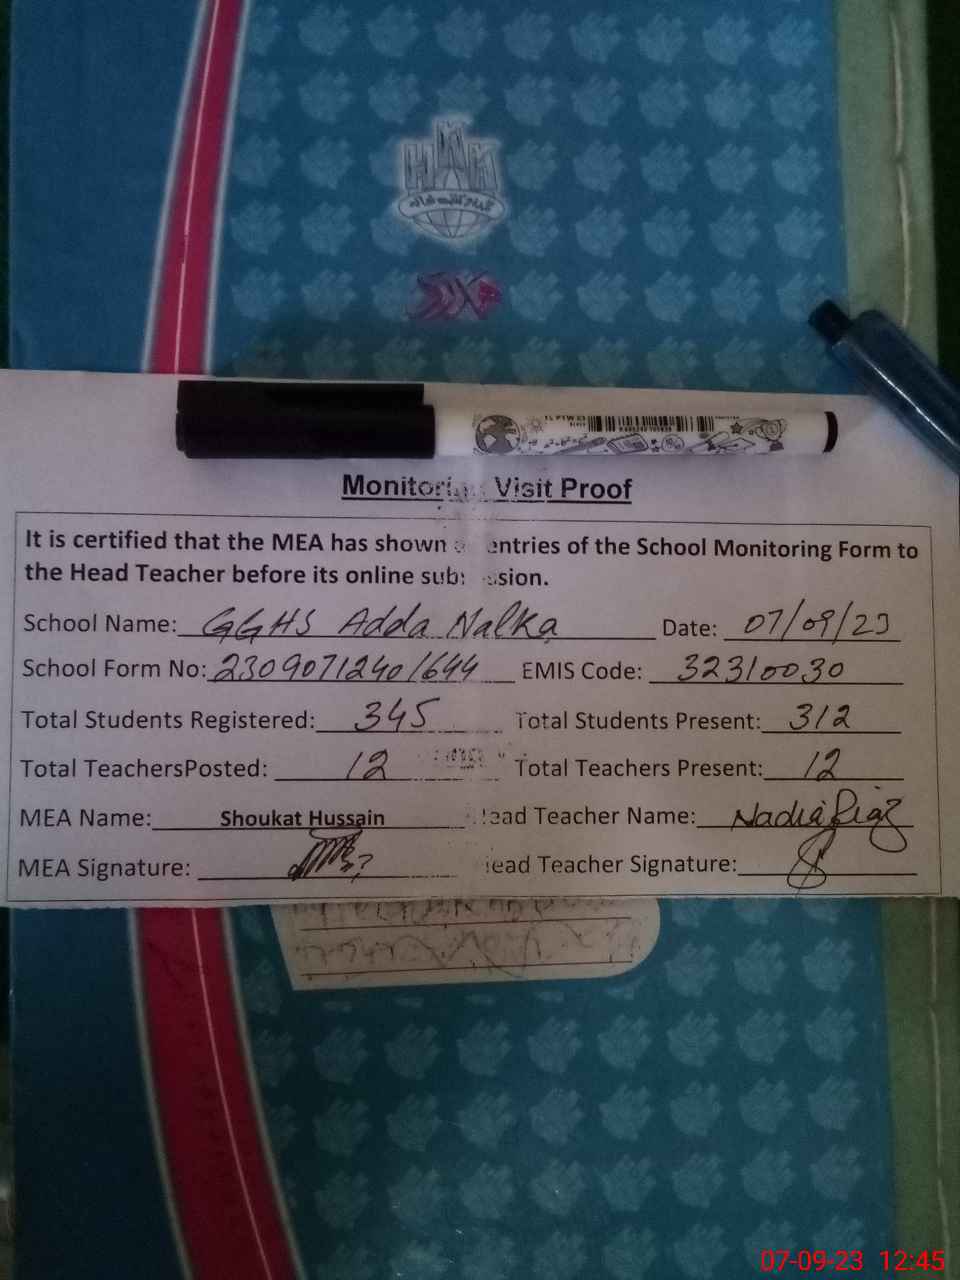 Monitoring Visit Proof
It is certified that the MEA has shown entries of the School Monitoring Form to
the Head Teacher before its online submission.
School Name: GGHS Adda Nalka Date: 07/09/23
School Form No: 23090712401644 EMIS Code: 32310030
Total Students Registered: 345 Total Students Present: 312
Total TeachersPosted: 12 Total Teachers Present: 12
MEA Name: Shoukat Hussain Head Teacher Name: Nadia Riaz
MEA Signature: Head Teacher Signature:
07-09-23 12:45